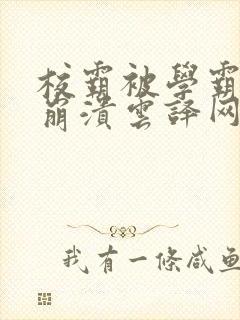 校霸被學霸
崩潰雲譯网
我有一條咸鱼